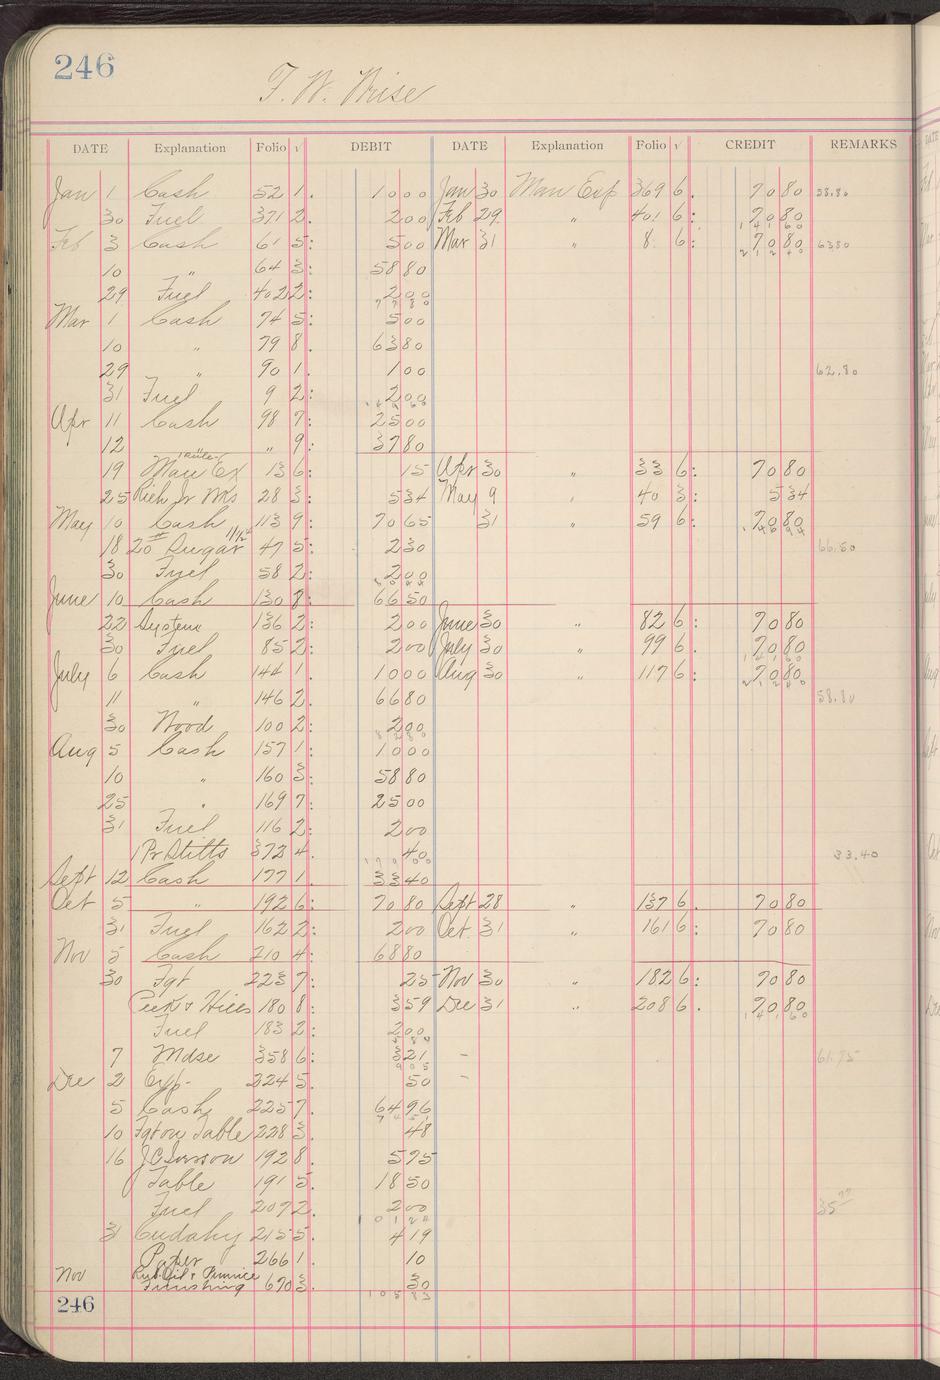 246
T. W. Wise
DATE Explanation Folio √ DEBIT DATE Explanation Folio √ CREDIT REMARKS
Jan 1 Cash 52 1. 10 00 Jan 30 Man Exp 369 6. 70 80 58.80
30 Fuel 371 2. 2 00 Feb 29. " 401 6: 70 80
141 60
Feb 3 Cash 61 5: 5 00 Mar 31 " 8. 6: 70 80 63 80
212 40
10 " 64 3: 58 80
29 Fuel 402 2: 2 00
77 80
Mar 1 Cash 74 5: 5 00
10 " 79 8. 63 80
29 " 90 1. 1 00 62.80
31 Fuel 9 2: 2 00
Apr 11 Cash 98 7: 25 00
12 " " 9: 37 80
19 Man Ex 13 6: 15 Apr 30 " 33 6: 70 80
25 28 3: 5 34 May 9 " 40 3: 5 34
May 10 Cash 113 9: 70 65 31 " 59 6: 70 80
18 20# Sugar 11½ 47 5: 2 30 66.50
30 Fuel 58 2: 2 00
June 10 Cash 130 8: 66 50
22 System 136 2: 2 00 June 30 " 82 6: 70 80
30 Fuel 85 2: 2 00 July 30 " 99 6. 70 80
141 60
July 6 Cash 144 1. 10 00 Aug 30 " 117 6: 70 80
212 40
11 " 146 2. 66 80 58.80
30 Wood 100 2: 2 00
Aug 5 Cash 157 1: 10 00
10 " 160 3: 58 80
25 " 169 7: 25 00
31 Fuel 116 2: 2 00
1 Pr Stilts 373 4. 40 33.40
Sept 12 Cash 177 1. 33 40
Oct 5 " 192 6: 70 80 Sept 28 " 137 6. 70 80
31 Fuel 162 2: 2 00 Oct. 31 " 161 6: 70 80
Nov 5 Cash 210 4: 68 80
30 Fgt 223 7: 25 Nov 30 " 182 6: 70 80
180 8: 3 59 Dec 31 " 208 6. 70 80
141 60
Fuel 183 2: 2 00
7 Mdse 358 6: 3 21 – 61.75
9 05
Dec 2 Exp- 224 5. 50 –
5 Cash 225 7. 64 96
10 Fgt on Table 228 3. 48
16 192 8. 5 75
Table 191 5. 18 50
Fuel 207 2. 2 00
101 24
31 Cudahy 215 5. 4 19
Paper 266 1. 10
Nov Rub Oil & Pumice
Finishing 670 3. 30
105 83
246